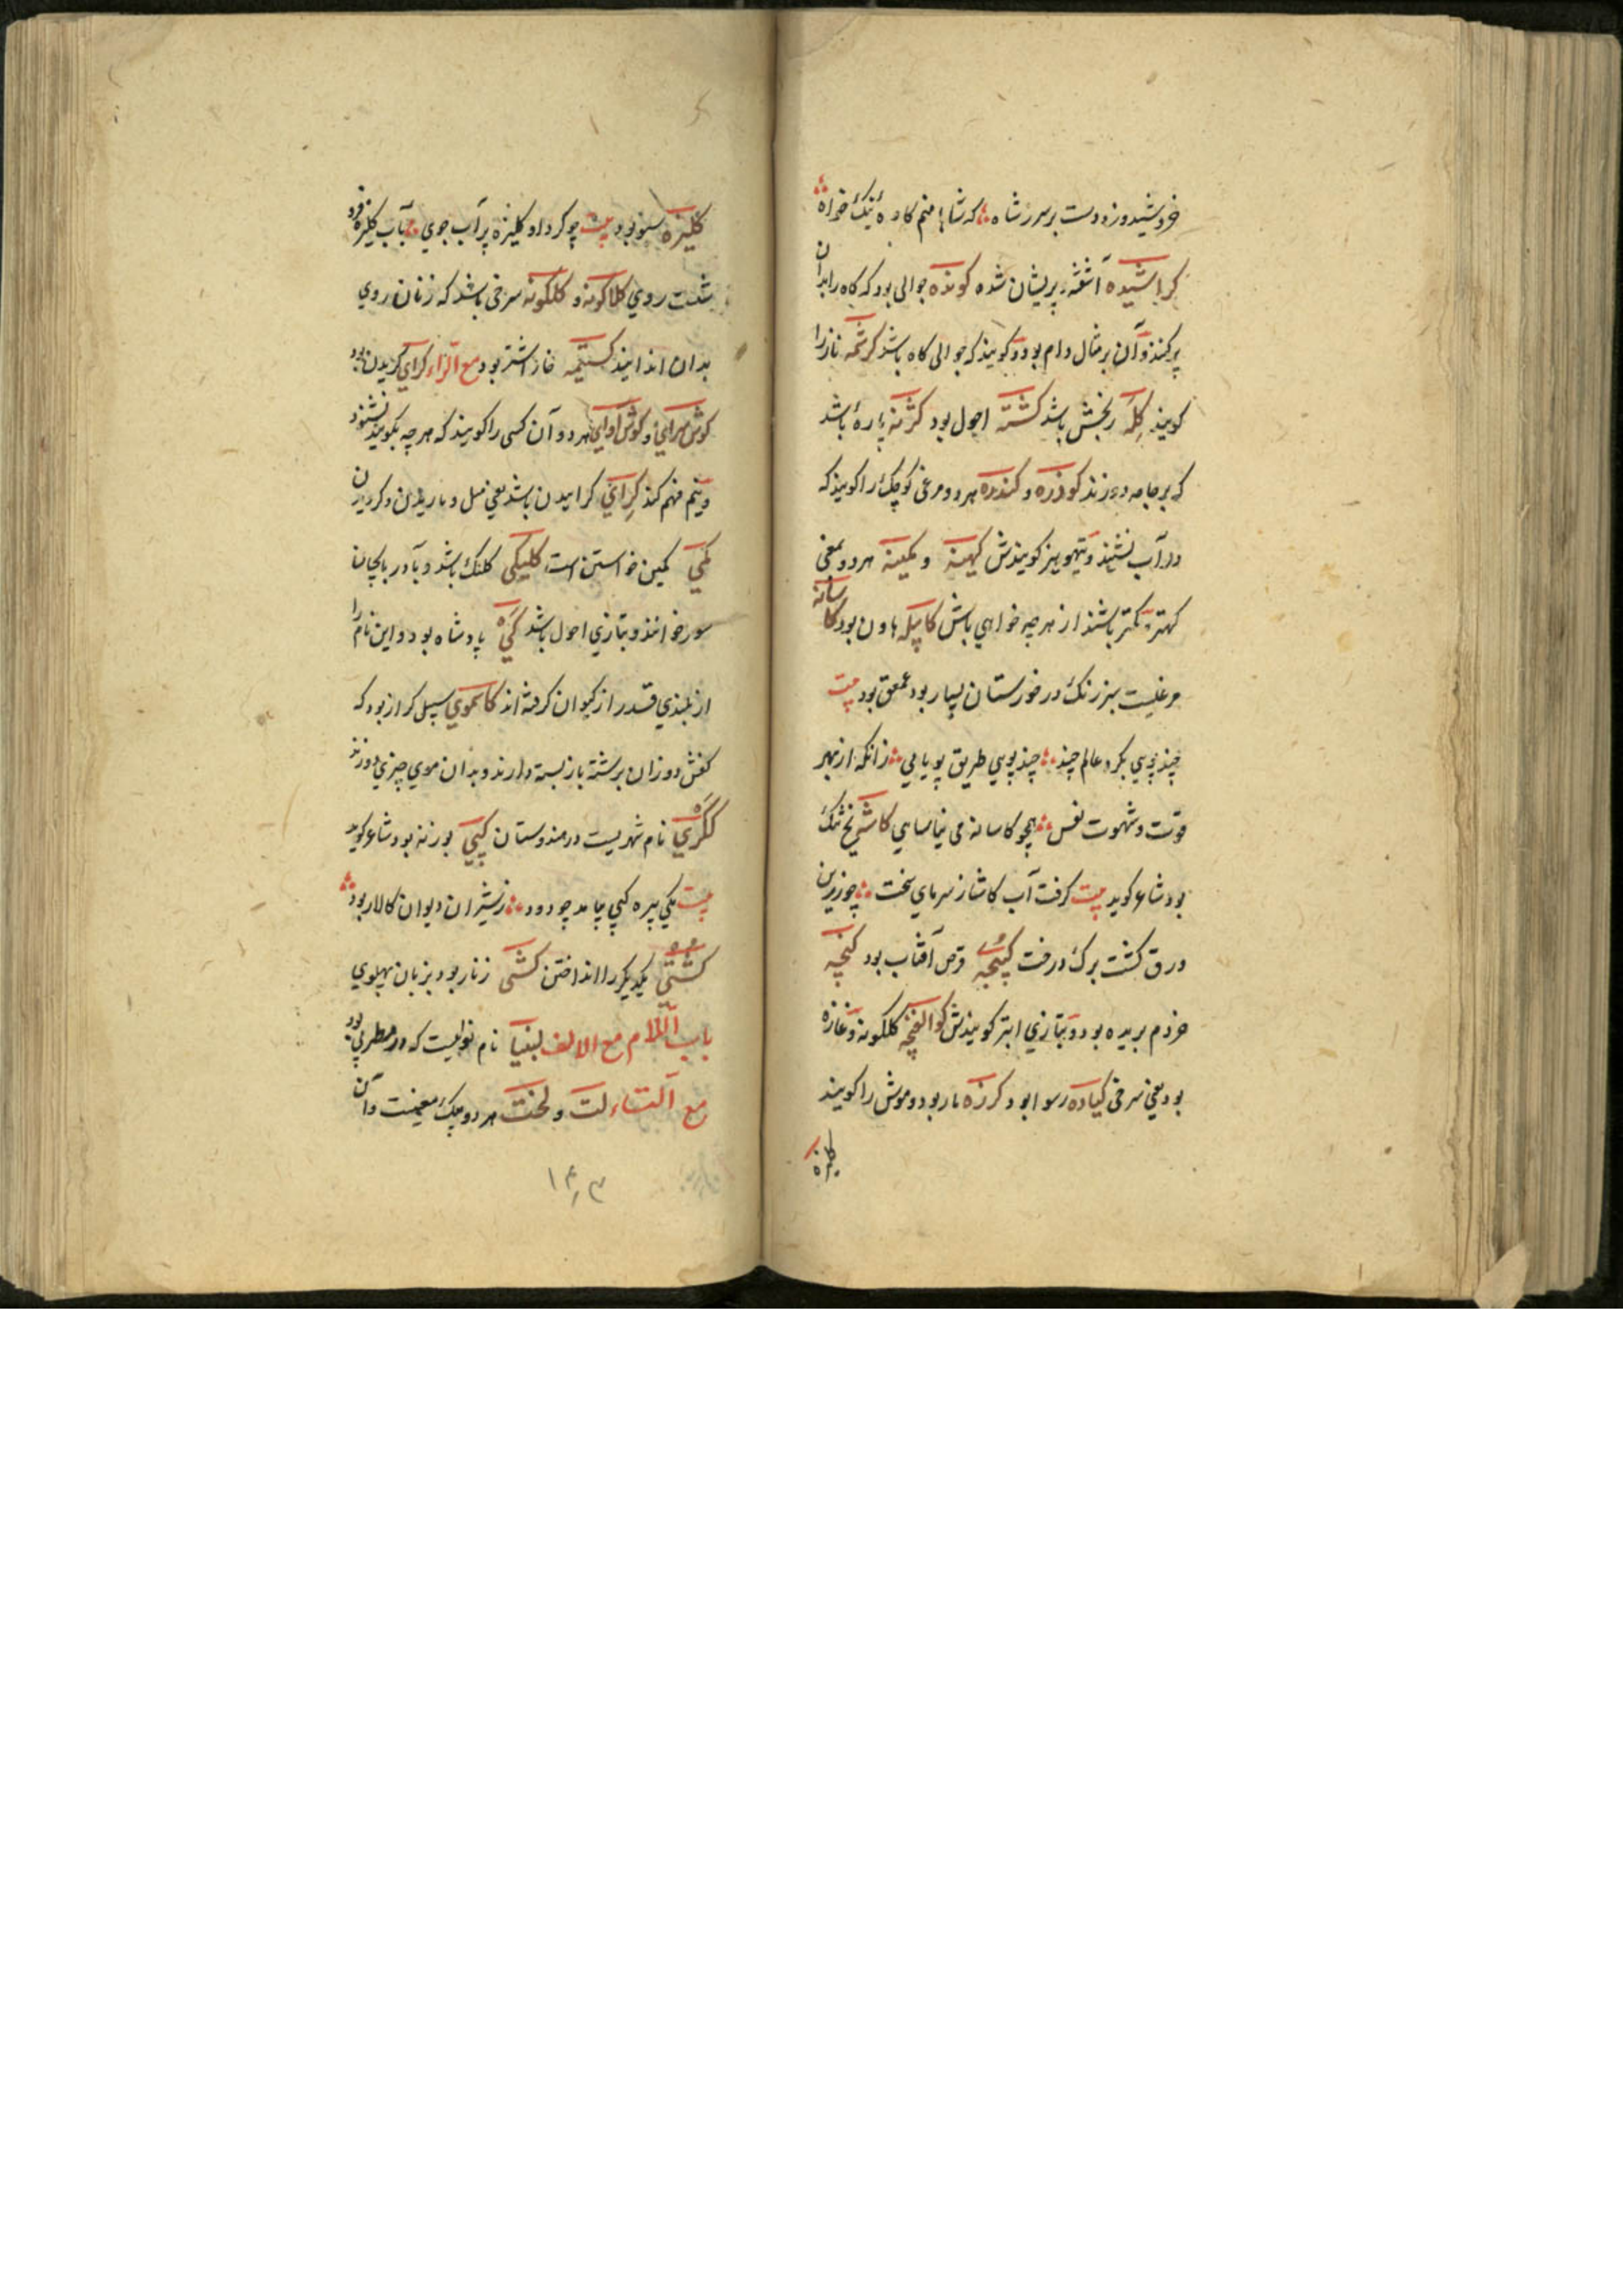 خروشید و زد دست بر سر ز شاه که شاها منم کاوهٔ نیک خواه
کراشیده آشفته و پریشان شده کونده جوالی بود که کاه را بدان
پر کنند و آن بر مثال دام بود و کویند که جوالی کاه باشد کرشمه ناز را
کویند کله رنجش باشد کشته احول بود کژمنه پاره باشد
که بر جامه دوزند کوذره و کندره هر دو مرغی کوچک را کویند که
در آب نشیند و تیهو نیز کویندش کهینه و کمینه هر دو بمعنی
کهتر و کمتر باشند از هر چه خواهی باش کاپیله هاون بود کاسانه
مرغیست سبز رنک در خوزستان بسیار بود عمعق بود بیت
چند پوی بکرد عالم چند چند پویی طریق پویایی زانکه از بهر
قوت و شهوت نفس همچو کاسانه می نیاسایی کاشه یخ تنک
بود شاعر کوید بیت کرفت آب کاشه ز سرمای سخت چو زرین
ورق کشت برک درخت کپنجه قرص آفتاب بود کنجه
خر دم بریده بود و بتازی ابتر کویندش کوالغنجه کلکونه و غازه
بود یعنی سرخی کیاده رسوا بود کرزه مار بود و موش را کویند
کلیزه
کلیزه سبو بود بیت چو کرد او کلیزه پر آب جوی بآب کلیزه فرو
شست روی کلاکونه و کلکونه سرخی باشد که زنان روی
بدان اندایند کستیمه خار اشتر بود مع الراء کرای کریدن بود
کوش سرای و کوش آوای هر دو آن کسی را کویند که هر چه بکویند بشنود
و فهم کند کرای کراییدن باشد یعنی میل و کردن
کمی کمین خواستن است کلیکی کلنک باشد و بآذربایجان
سور خوانند و بتازی احول باشد کی پادشاه بود و این نام را
از بلندی قدر از کیوان کرفته اند کاسموی سبیل کراز بود که
کفش دوزان بر رشته باز بسته دارند و بدان موی چیزی دوزند
ککری نام شهریست در هندوستان کپی بوزنه بود شاعر کوید
بیت یکی پیره کپی بیامد چو دود ز شیران دیوان کالار بود
کشتی یکدیکر را انداختن کشتی زنار بود بزبان پهلوی
باب اللام مع الالف لبنیا نام نوایست که در مطربی بود
مع التاء لت و لخت هر دو یک معنیست و آن
۱۴۳